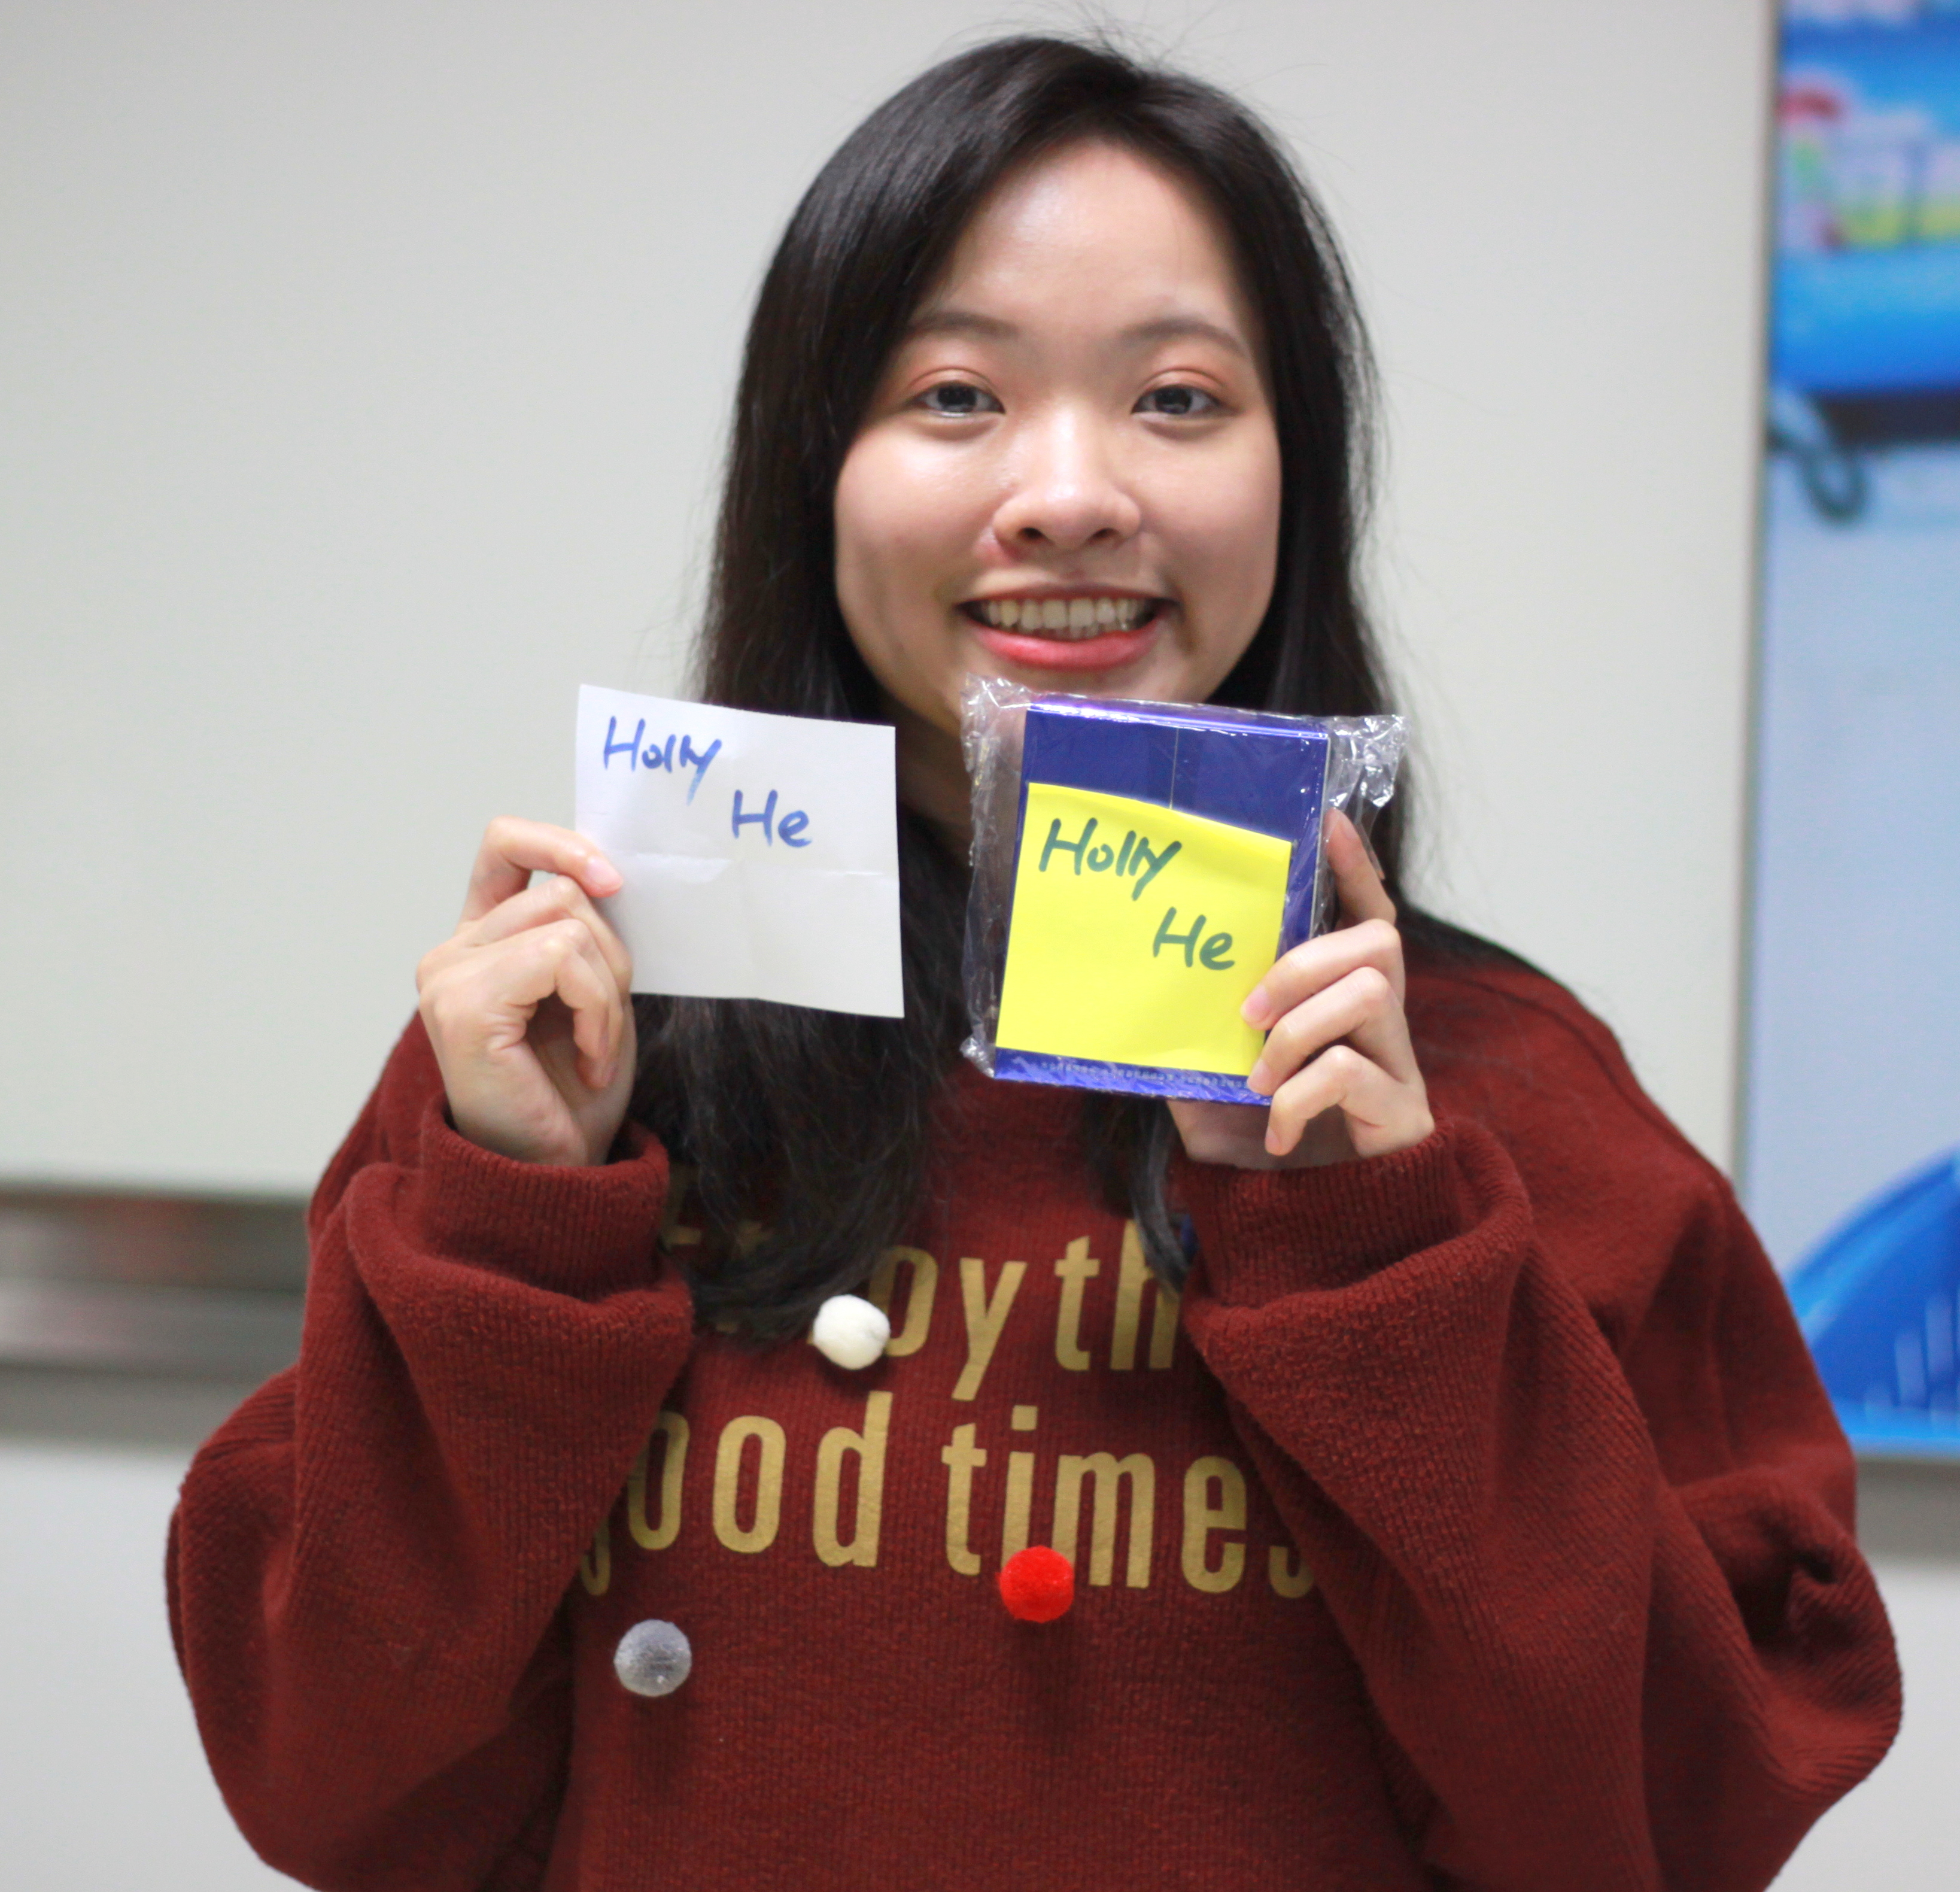 Holly
He
Holly
He
good times